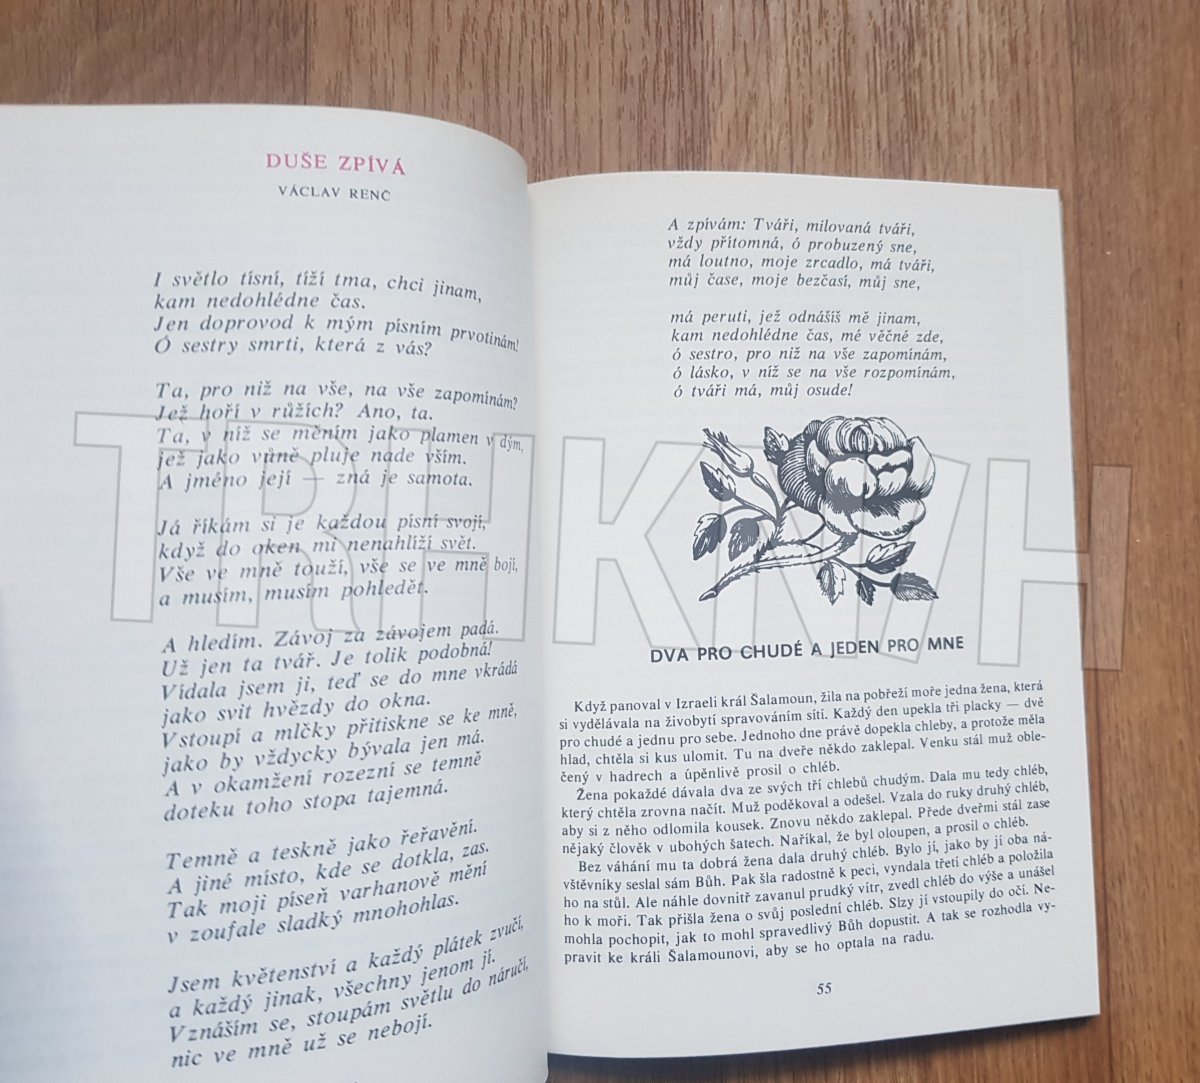 DUŠE ZPÍVÁ
VÁCLAV RENČ
I světlo tísní, tíží tma, chci jinam,
kam nedohlédne čas.
Jen doprovod k mým písním prvotinám!
Ó sestry smrti, která z vás?
Ta, pro niž na vše, na vše zapomínám?
Jež hoří v růžích? Ano, ta.
Ta, v níž se měním jako plamen v dým,
jež jako vůně pluje nade vším.
A jméno její — zná je samota.
Já říkám si je každou písní svojí,
když do oken mi nenahlíží svět.
Vše ve mně touží, vše se ve mně bojí,
a musím, musím pohledět.
A hledím. Závoj za závojem padá.
Už jen ta tvář. Je tolik podobná!
Vídala jsem ji, teď se do mne vkrádá
jako svit hvězdy do okna.
Vstoupí a mlčky přitiskne se ke mně,
jako by vždycky bývala jen má.
A v okamžení rozezní se temně
doteku toho stopa tajemná.
Temně a teskně jako řeřavění.
A jiné místo, kde se dotkla, zas.
Tak moji píseň varhanově mění
v zoufale sladký mnohohlas.
Jsem květenství a každý plátek zvučí,
a každý jinak, všechny jenom jí.
Vznáším se, stoupám světlu do náručí,
nic ve mně už se nebojí.
A zpívám: Tváři, milovaná tváři,
vždy přítomná, ó probuzený sne,
má loutno, moje zrcadlo, má tváři,
můj čase, moje bezčasí, můj sne,
má peruti, jež odnášíš mě jinam,
kam nedohlédne čas, mé věčné zde,
ó sestro, pro niž na vše zapomínám,
ó lásko, v níž se na vše rozpomínám,
ó tváři má, můj osude!
TRHKNIH
DVA PRO CHUDÉ A JEDEN PRO MNE
Když panoval v Izraeli král Šalamoun, žila na pobřeží moře jedna žena, která
si vydělávala na živobytí spravováním sítí. Každý den upekla tři placky — dvě
pro chudé a jednu pro sebe. Jednoho dne právě dopekla chleby, a protože měla
hlad, chtěla si kus ulomit. Tu na dveře někdo zaklepal. Venku stál muž oble-
čený v hadrech a úpěnlivě prosil o chléb.
Žena pokaždé dávala dva ze svých tří chlebů chudým. Dala mu tedy chléb,
který chtěla zrovna načít. Muž poděkoval a odešel. Vzala do ruky druhý chléb,
aby si z něho odlomila kousek. Znovu někdo zaklepal. Přede dveřmi stál zase
nějaký člověk v ubohých šatech. Naříkal, že byl oloupen, a prosil o chléb.
Bez váhání mu ta dobrá žena dala druhý chléb. Bylo jí, jako by jí oba ná-
vštěvníky seslal sám Bůh. Pak šla radostně k peci, vyndala třetí chléb a položila
ho na stůl. Ale náhle dovnitř zavanul prudký vítr, zvedl chléb do výše a unášel
ho k moři. Tak přišla žena o svůj poslední chléb. Slzy jí vstoupily do očí. Ne-
mohla pochopit, jak to mohl spravedlivý Bůh dopustit. A tak se rozhodla vy-
pravit ke králi Šalamounovi, aby se ho optala na radu.
55